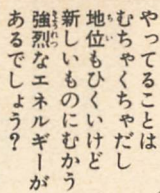 やってることは
むちゃくちゃだし
地位もひくいけど
新しいものにむかう
強烈なエネルギーが
あるでしょう？